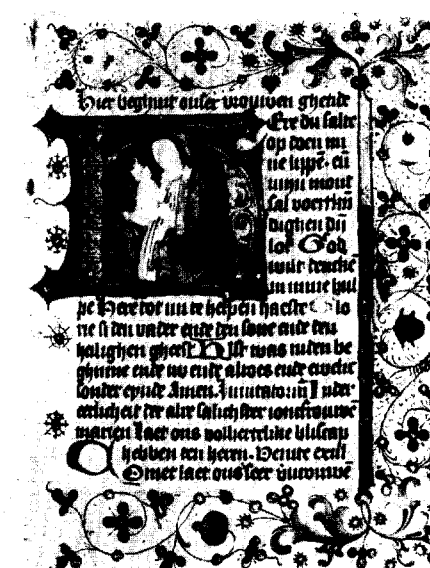 Hier beghint onser vrouwen ghetide
Ere du salte
op doen mi
ne lippē. eñ
minen mont
sal voertkū
dighen dijn
lof God
wilt dencken
in mine hul
pe Here tot mi te helpen haeste Glo
rie si den vader ende den sone ende den
halighen gheest Alst was inden be
ghinne ende nu ende altoes ende ewelic
sonder eynde Amen. Inuitatoriū Inder
eerlicheit der alre salichster ioncfrouwē
marien Laet ons volherttelike bliscap
hebben den heren. Venite exul
Comet laet ons seer vervrouwē